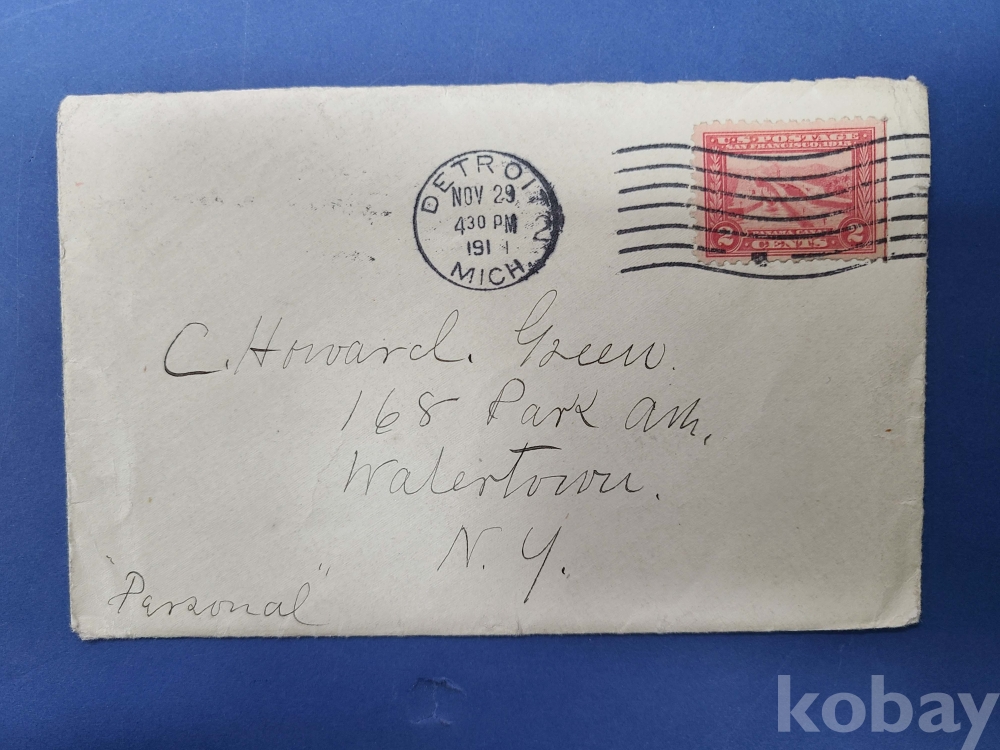 U.S. POSTAGE
SAN FRANCISCO 1915
2 CENTS 2
DETROIT
NOV 29
4 30 PM
191
MICH.
C. Howard. Green.
168 Park
Watertown.
N. Y.
"Personal"
kobay